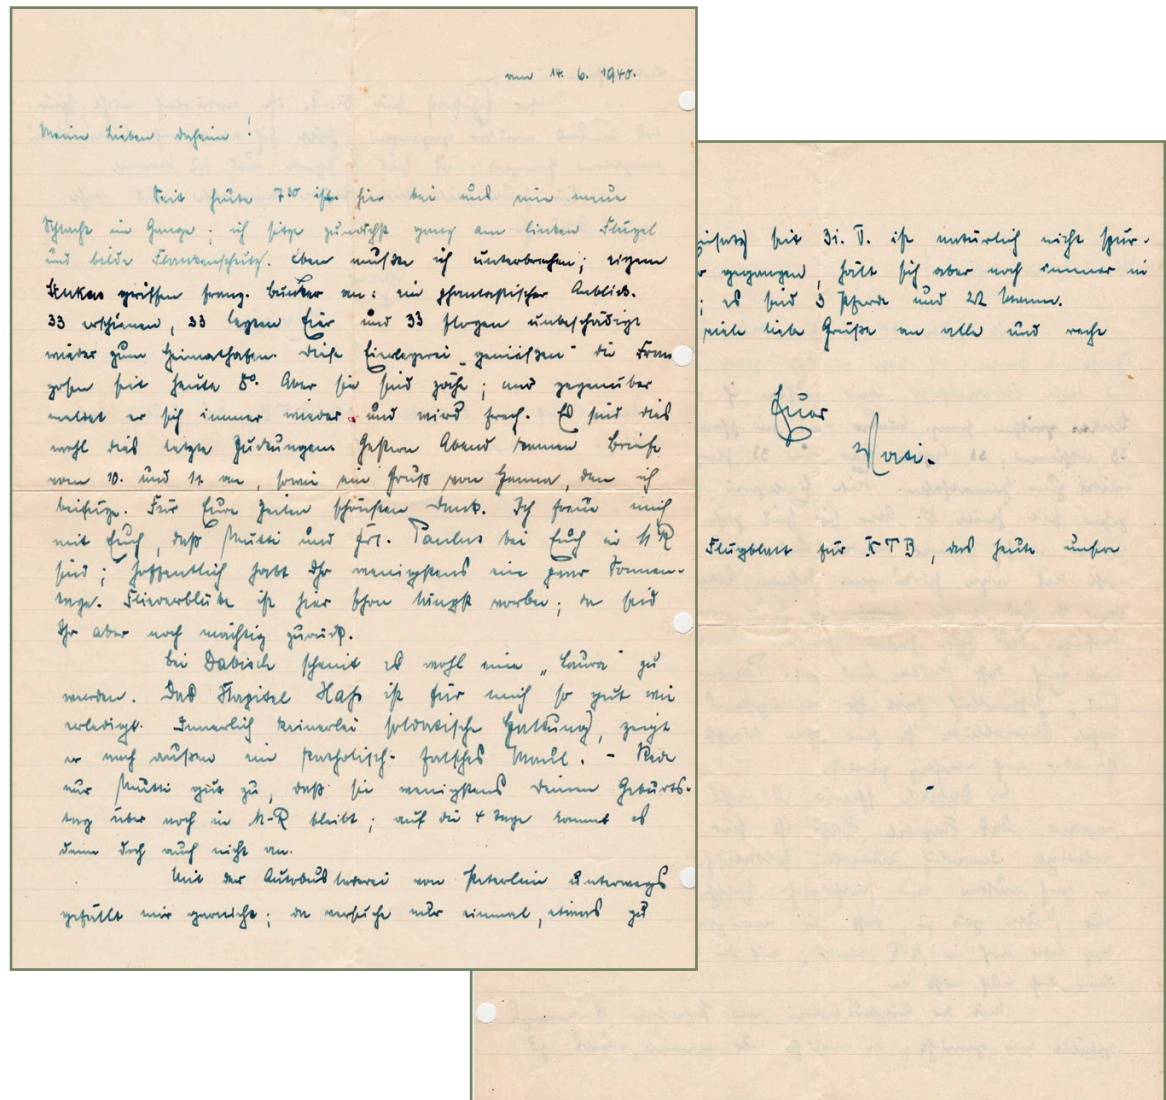 am 14. 6. 1940.
Meine Lieben daheim!
Seit heute 7³⁰ ist hier bei uns eine neue
Schlacht im Gange; ich sitze zunächst ganz am linken Flügel
und bilde Flankenschutz. Eben mußte ich unterbrechen; eigene
Stukas griffen franz. Bunker an: ein phantastischer Anblick.
33 erschienen, 33 legten Eier und 33 flogen unbeschädigt
wieder zum Heimathafen. Diese Eierlegerei „genießen" die Fran
zosen seit heute 8⁰. Aber sie sind zähe; uns gegenüber
meldet er sich immer wieder und wird frech. Es sind dies
wohl die letzte Zuckungen. Gestern Abend kamen Briefe
vom 10. und 11. an, sowie ein Gruß von Hanna, den ich
beifüge. Für Eure Zeilen schönsten Dank. Ich freue mich
mit Euch, daß Mutti und Frl. Paulus bei Euch in K R
sind; hoffentlich habt Ihr wenigstens ein paar Sonnen-
tage. Fliederblüte ist hier schon längst vorbei; da seid
Ihr aber noch mächtig zurück.
Bei Dabisch scheint es wohl eine „Laura" zu
werden. Das Kapitel Hafs ist für mich so gut wie
erledigt. Innerlich keinerlei soldatische Haltung, zeigt
er nach außen ein katholisch-falsches Maul. – Rede
nur Mutti gut zu, daß sie wenigstens Deinen Geburts-
tag über noch in K-R bleibt; auf die 4 Tage kommt es
denn doch auch nicht an.
Mit der Autobuslererei von Peterlein unterwegs
gefällt mir garnicht; da versuche nur einmal, etwas zu
seit 31. V. ist natürlich nicht spur-
gegangen, hält sich aber noch immer in
; es sind 3 Pferde und 22 Mann.
viele liebe Grüße an alle und recht
Euer
Flugblatt für KTB, das heute unsere